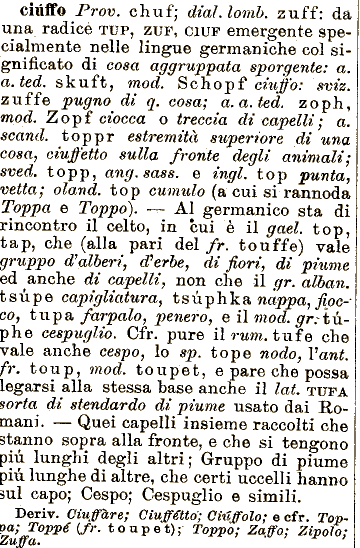 ciúffo Prov. chuf; dial. lomb. zuff: da
una radice TUP, ZUF, CIUF emergente spe-
cialmente nelle lingue germaniche col si-
gnificato di cosa aggruppata sporgente: a.
a. ted. skuft, mod. Schopf ciuffo: sviz.
zuffe pugno di q. cosa; a. a. ted. zoph,
mod. Zopf ciocca o treccia di capelli; a.
scand. toppr estremità superiore di una
cosa, ciuffetto sulla fronte degli animali;
sved. topp, ang. sass. e ingl. top punta,
vetta; oland. top cumulo (a cui si rannoda
Toppa e Toppo). — Al germanico sta di
rincontro il celto, in cui è il gael. top,
tap, che (alla pari del fr. touffe) vale
gruppo d'alberi, d'erbe, di fiori, di piume
ed anche di capelli, non che il gr. alban.
tsúpe capigliatura, tsúphka nappa, fioc-
co, tupa farpalo, penero, e il mod. gr. tú-
phe cespuglio. Cfr. pure il rum. tufe che
vale anche cespo, lo sp. tope nodo, l'ant.
fr. toup, mod. toupet, e pare che possa
legarsi alla stessa base anche il lat. TUFA
sorta di stendardo di piume usato dai Ro-
mani. — Quei capelli insieme raccolti che
stanno sopra alla fronte, e che si tengono
piú lunghi degli altri; Gruppo di piume
piú lunghe di altre, che certi uccelli hanno
sul capo; Cespo; Cespuglio e simili.
Deriv. Ciuffàre; Ciuffétto; Ciúffolo; e cfr. Top-
pa; Toppé (fr. toupet); Toppo; Zaffo; Zipolo;
Zuffa.